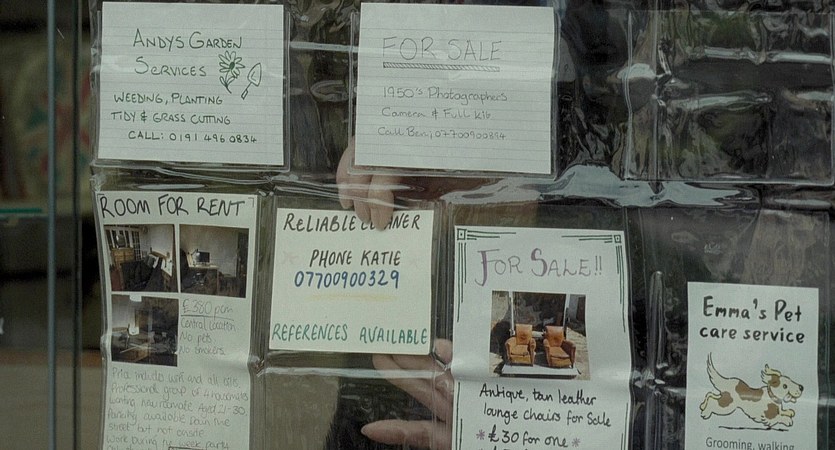 ANDYS GARDEN
SERVICES
WEEDING, PLANTING
TIDY & GRASS CUTTING
CALL: 0191 496 0834
FOR SALE
1950's Photographers
Camera & Full Kit
Call Ben, 07700900894
ROOM FOR RENT
£350 pcm
Central Location
No pets
No smokers
Price includes wifi and all bills
Professional group of 4 housemates
wanting housemate Aged 21-30.
Parking available down the
street but not onsite.
Work during the week, party
RELIABLE CLEANER
PHONE KATIE
07700900329
REFERENCES AVAILABLE
FOR SALE!!
Antique, tan leather
lounge chairs for Sale
* £30 for one *
Emma's Pet
care service
Grooming, walking